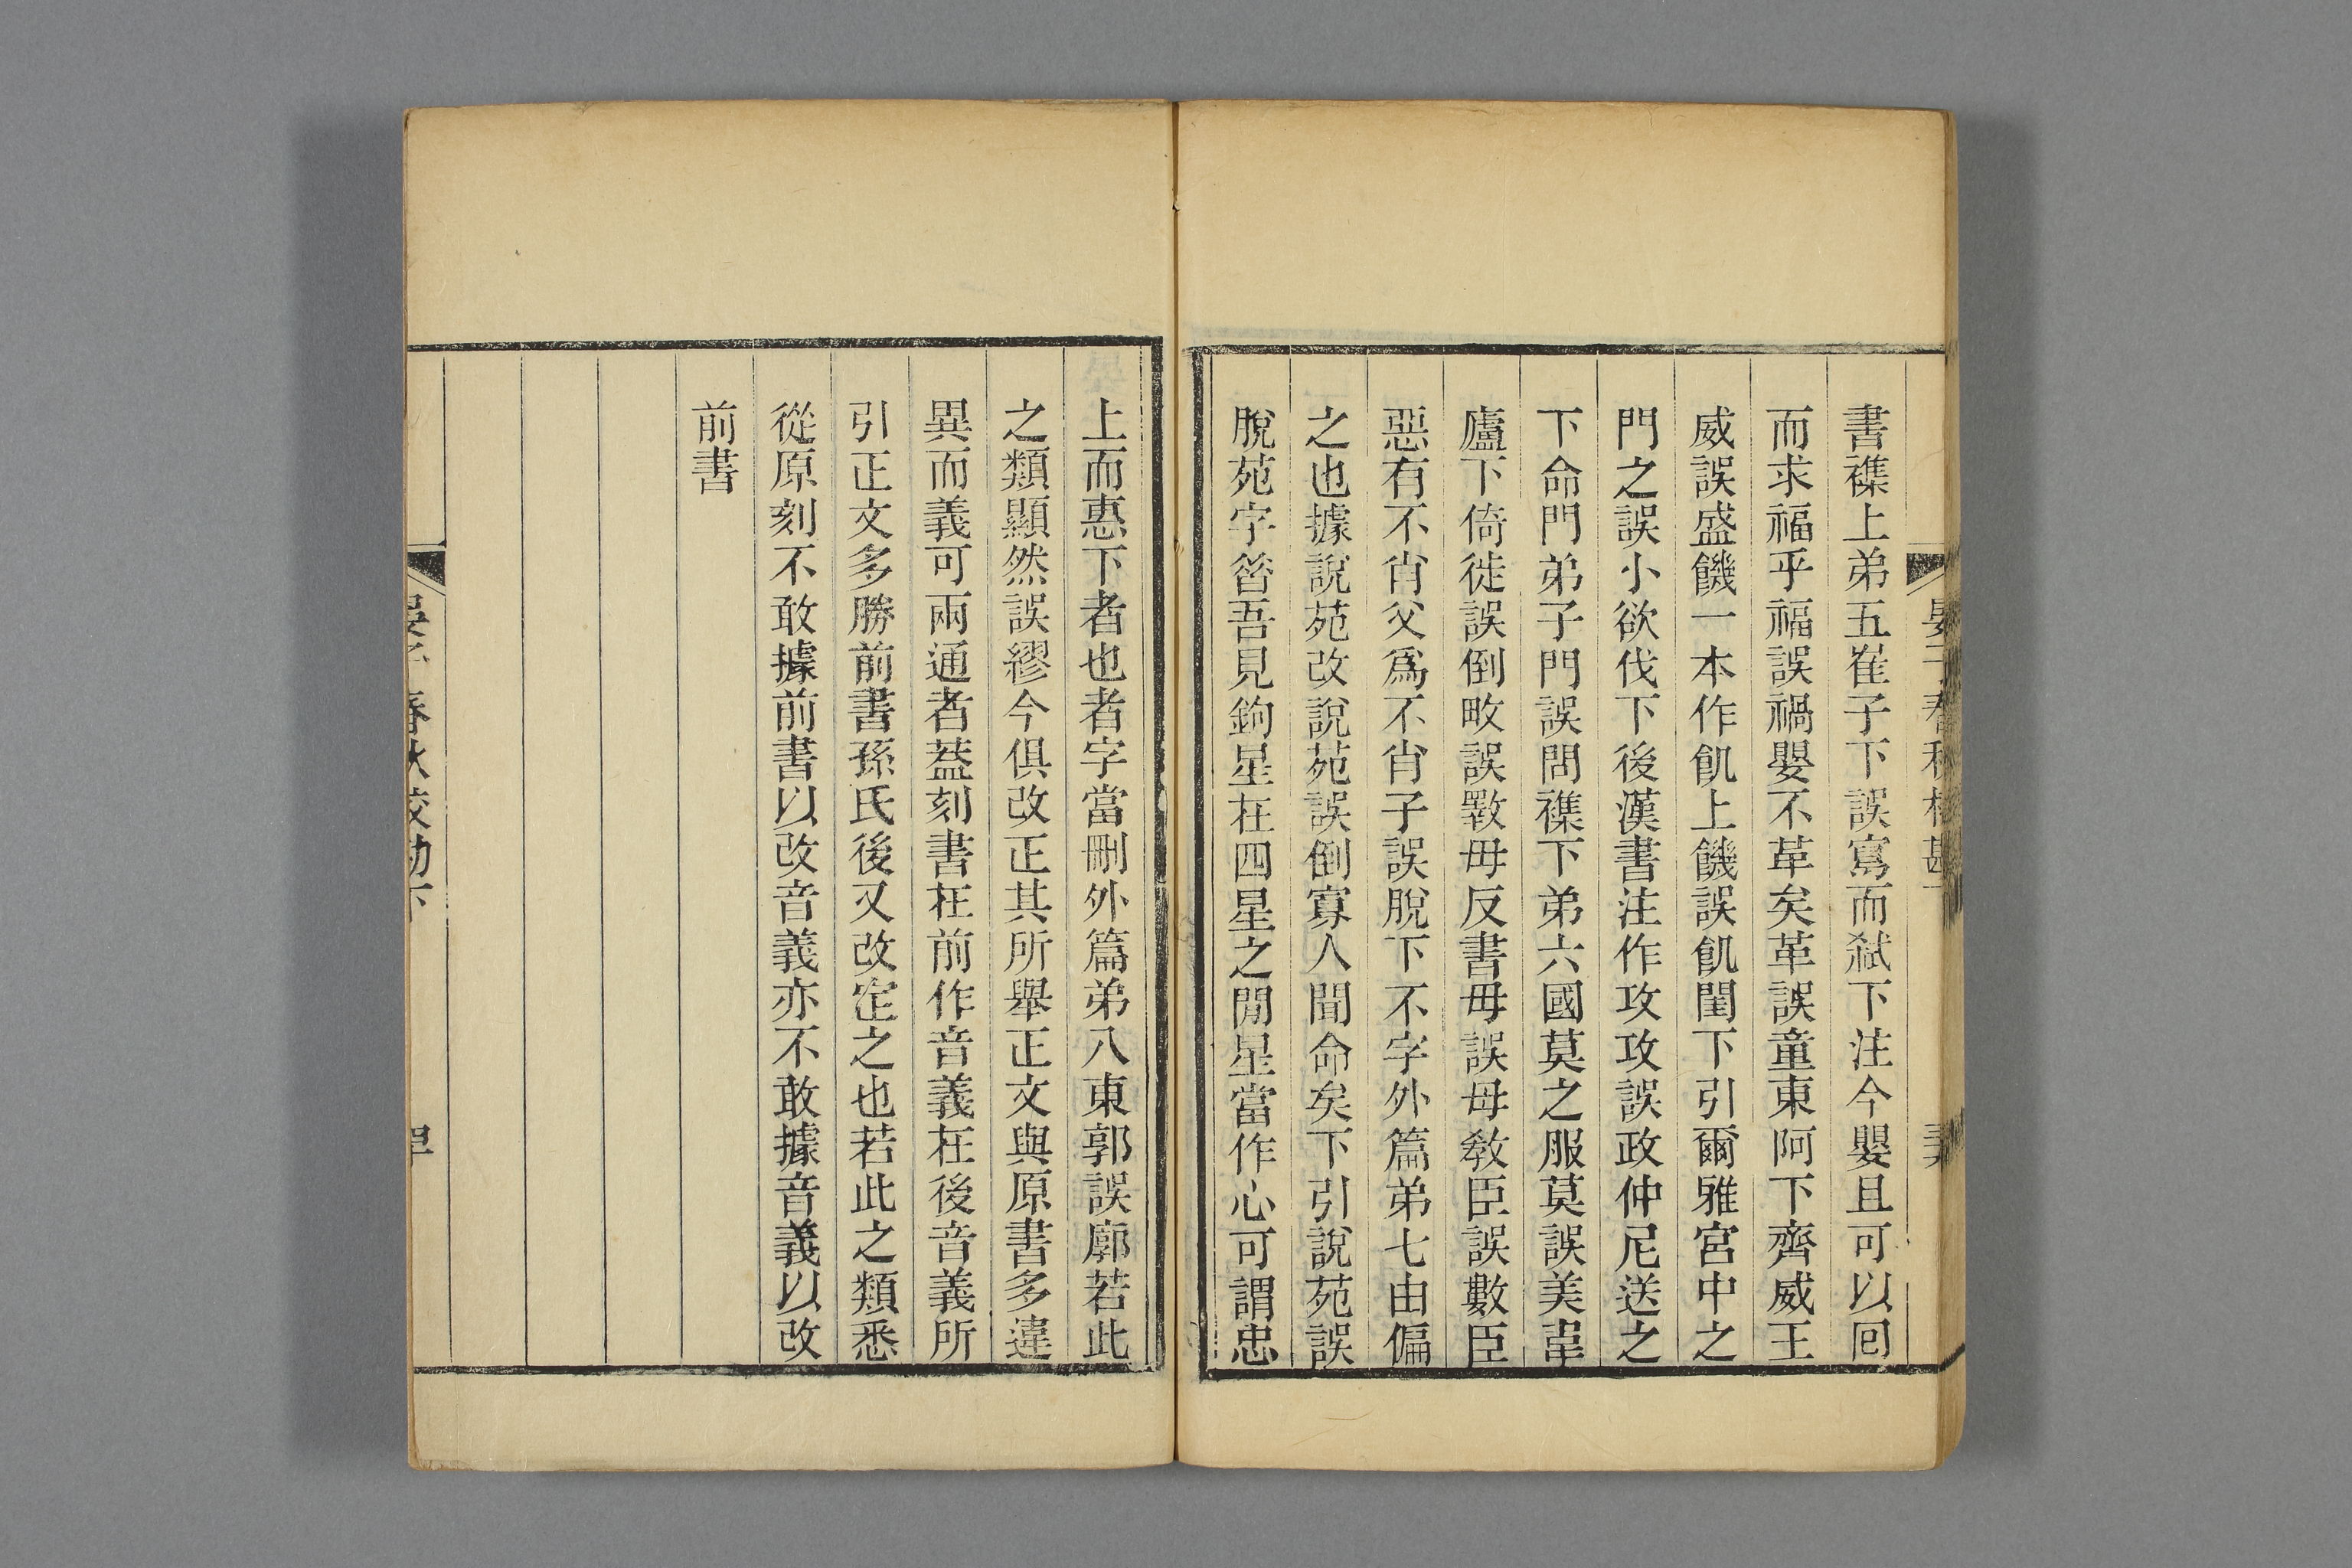 書襍上弟五崔子下誤寫而弑下注今嬰且可以回
而求福乎福誤禍嬰不革矣革誤童東阿下齊威王
威誤盛饑一本作飢上饑誤飢閨下引爾雅宮中之
門之誤小欲伐下後漢書注作攻攻誤政仲尼送之
下命門弟子門誤問襍下弟六國莫之服莫誤美韋
廬下倚徙誤倒畋誤斁毋反書毋誤母敎臣誤數臣
惡有不肖父爲不肖子誤脫下不字外篇弟七由偏
之也據說苑改說苑誤倒寡人聞命矣下引說苑誤
脫苑字昝吾見鉤星在四星之閒星當作心可謂忠
上而惠下者也者字當刪外篇弟八東郭誤廓若此
之類顯然誤繆今俱改正其所舉正文與原書多違
異而義可兩通者葢刻書在前作音義在後音義所
引正文多勝前書孫氏後又改定之也若此之類悉
從原刻不敢據前書以改音義亦不敢據音義以改
前書
晏子春秋校勘下